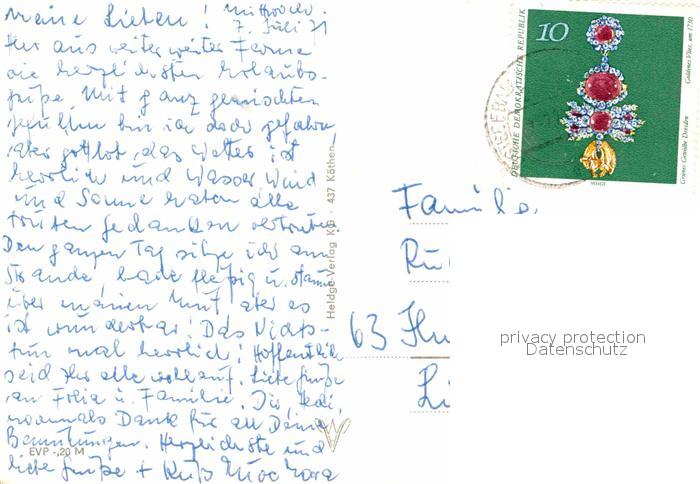 Meine Lieben! Mittwoch.
7. Juli 71
Hier aus weiter weiter Ferne
die herzlichsten Urlaubs-
grüße. Mit ganz gemischten
Gefühlen bin ich doch gefahren
aber gottlob, das Wetter ist
herrlich und Wasser Wind
und Sonne haben alle
tristen Gedanken vertrieben.
Den ganzen Tag sitze ich am
Strande, bade fleißig u. staune
über meinen Mut aber es
ist wunderbar! Das Nichts-
tun mal herrlich! Hoffentlich
seid Ihr alle wohlauf. Liebe Grüße
an u. Familie. Dir,
nochmals Dank für all Deine
Bemühungen. Herzlichste und
liebe Grüße + Kuß
EVP -,20 M
Heldge-Verlag KG · 437 Köthen
Familie
Ru
63 Ilm
Li
10
DEUTSCHE DEMOKRATISCHE REPUBLIK
Goldenes Vlies, um 1730
Grünes Gewölbe Dresden
VOIGT
privacy protection
Datenschutz